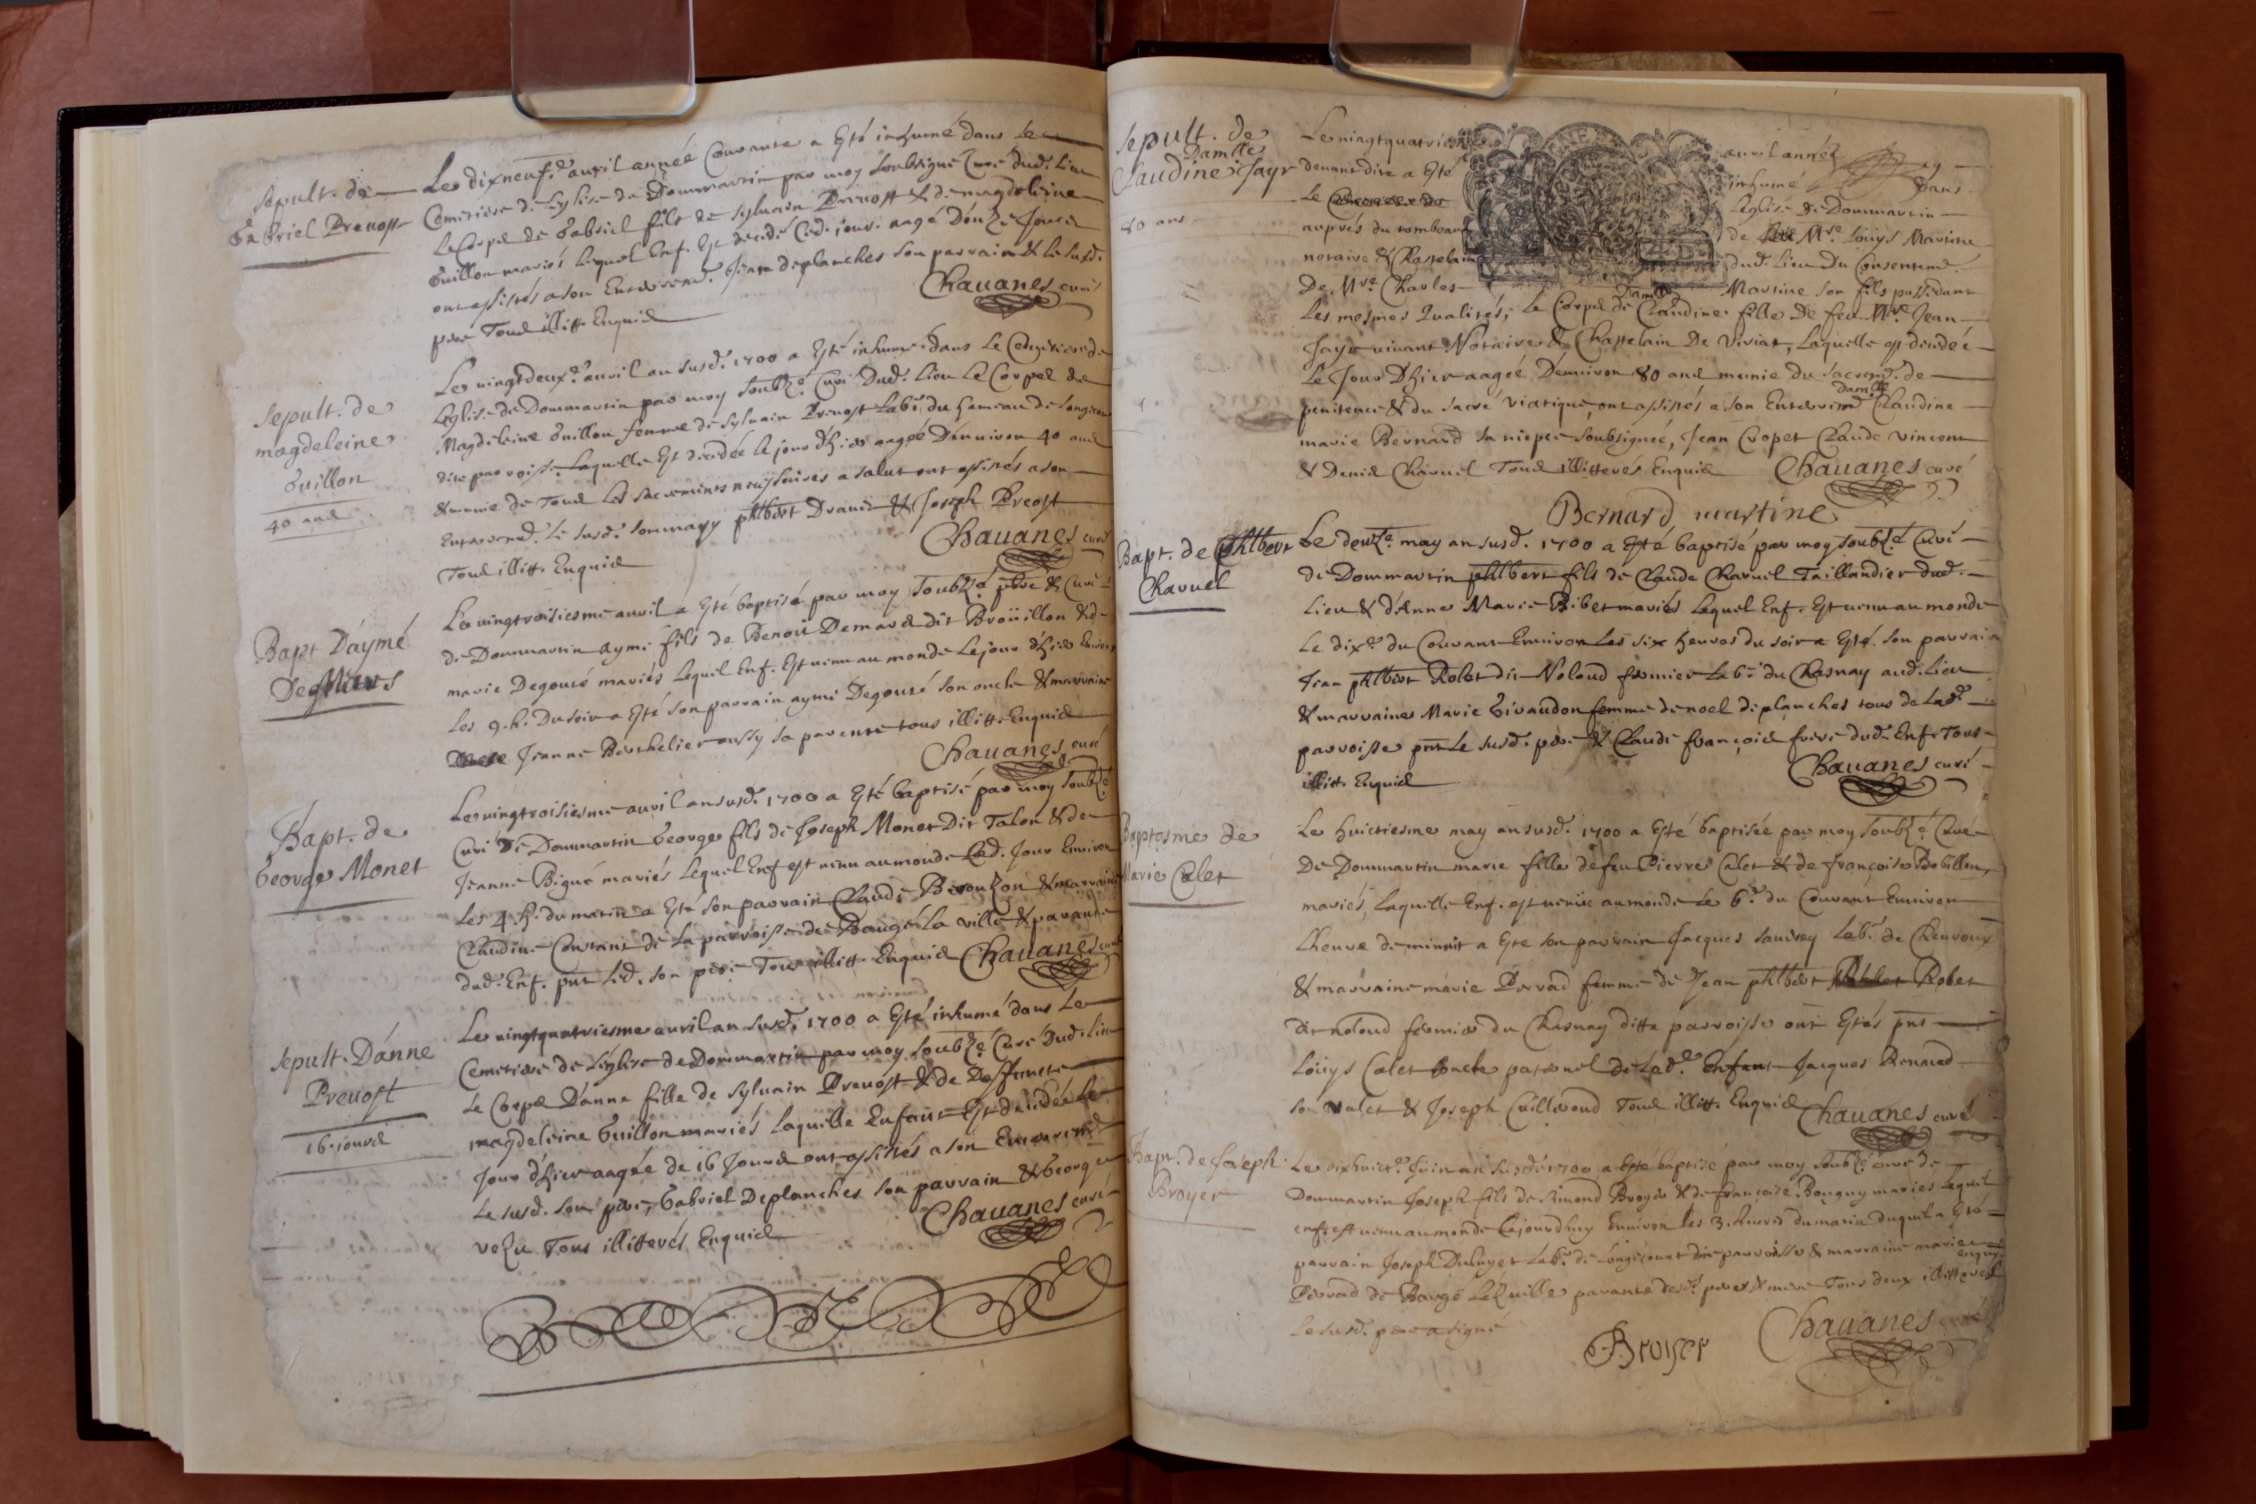 Sepult. de
Gabriel Prevost
Le dixneuf.e avril année Courante a Esté inhumé dans le
Cemetiere de leglise de Dommartin par moy soubsigné Curé dud. Lieu
le Corps de Gabriel fils de Sylvain Prevost & de magdeleine
Guillon mariés lequel Enf. Est decedé led. jour aagé d'onze Jours
ont assistés a son Enterrem.t Jean deplanches son parrain & le susd.
pere Tous illitt. Enquis
Chavanes curé
Sepult. de
magdeleine
Guillon
40 ans
Le vingtdeux.e avril an susd. 1700 a Esté inhumée dans le Cemetiere de
Leglise de Dommartin par moy soubz.é Curé Dud. Lieu Le Corps de
Magdeleine Guillon femme de Sylvain Prevost Lab.r du hameau de
dite parroisse Laquelle Est decedée le jour d'hier aagée D'environ 40 ans
& munie de Tous les sacrements necessaires a salut ont assistés a son
Enterrem.t le susd. son mary phlbert Dravet & Joseph Preost
Tous illitt. Enquis
Chavanes curé
Bapt. D'aymé
Le vingtroisiesme avril a Esté baptisé par moy soubz.é pbre & Curé
de Dommartin Aymé fils de Benoit Demard dit Broüillon & de
marie Degouté mariés Lequel Enf. Est venu au monde Le jour d'hier Environ
les 9. h. Du soir a Esté son parrain aymé Degouté son oncle & marraine
Jeanne Berthelier aussy sa parente tous illitt. Enquis
Chavanes curé
Bapt. de
George Monet
Le vingtroisiesme avril an susd. 1700 a Esté baptisé par moy soubz.é
Curé de Dommartin George fils de Joseph Monet Dit Talon & de
Jeanne Bigué mariés Lequel Enf. est venu au monde Led. Jour Environ
Les 4. h. du matin a Esté son parrain Claude & marraine
Claudine Constant de la parroisse de Baugé La ville & parante
dud. Enf. pnt led. son pere Tous illitt. Enquis Chavanes curé
Sepult. D'anne
Prevost
16. jours
Le vingtquatriesme avril an susd. 1700 a Esté inhumé dans Le
Cemetiere de L'église de Dommartin par moy soubz.é Curé Dud. Lieu
Le Corps D'anne fille de Sylvain Prevost & de Deffuncte
magdeleine Guillon mariés Laquelle Enfant Est decedée le
jour d'hier aagée de 16 Jours ont assistés a son Enterrem.t
Le susd. son pere, Gabriel Deplanches son parrain & George
vezu Tous illitterés Enquis
Chavanes curé
Sepult. de
Damlle
Claudine Jayr
80 ans
Le vingtquatriesme avril année
devant dite a Esté inhumé dans
Le L'église de Dommartin
auprés du tombeau de Mre Loüys Martine
notaire & Chastelain dud. Lieu Du Consentem.t
De Mre Charles Martine son fils possedant
Les mesmes Qualités, Le Corps de Damlle Claudine fille De feu Mre Jean
Jayr vivant Notaire & Chastelain De Viriat, Laquelle est decedée
Le Jour D'hier aagée D'environ 80 ans munie du sacrem.t de
penitence & du sacré viatique, ont assistés a son Enterrem.t Damlle Claudine
marie Bernard sa niepce soubsignée, Jean Cropet Claude Vincent
& Denis Charuel Tous illitterés Enquis Chavanes curé
Bernard martine
Bapt. de phlbert
Charuel
Le deuz.e may an susd. 1700 a Esté baptisé par moy soubz.é Curé
de Dommartin phlbert fils de Claude Charuel Taillandier dud.
Lieu & d'Anne Marie Bibet mariés Lequel Enf. Est venu au monde
Le dix.e du Courant Environ Les six heures du soir a Esté son parrain
Jean phlbert Robet dit Noloud fermier Lab.r du Chasnay aud. Lieu
& marraine Marie Givaudon femme de noel deplanches tous de Lad.
parroisse pnt Le susd. pere & Claude françois frere dud. Enf. Tous
illitt. Enquis
Chavanes curé
Baptesme de
Marie Calet
Le huictiesme may an susd. 1700 a Esté baptisée par moy soubz.é Curé
De Dommartin marie fille de feu Pierre Calet & de françoise Bobillon
mariés, Laquelle Enf. est venüe au monde Le 6.e du Courant Environ
L'heure de minuit a Esté son parrain Jacques Lab.r de Chevroux
& marraine marie Perrad femme de Jean phlbert Robet
dit noloud fermier du Chasnay ditte parroisse ont Estés pnts
Loüys Calet oncle paternel de Lad. Enfant Jacques Renaud
son valet & Joseph Cuillerond Tous illitt. Enquis Chavanes curé
Bapt. de Joseph
Broyer
Le dixhuict.e Juin an susd. 1700 a Esté baptisé par moy soubz.é curé de
Dommartin Joseph fils de Simond Broyer & de françoise Bouguy mariés Lequel
enf. est venu au monde Cejourd'huy Environ les 3. heures du matin duquel a Esté
parrain Joseph Duluyet Lab.r de dite parroisse & marraine marie
Perrad de Baugé parante des d. pere & mere Tous deux illitterés enquis
Le susd. pere a signé
Broiser
Chavanes curé